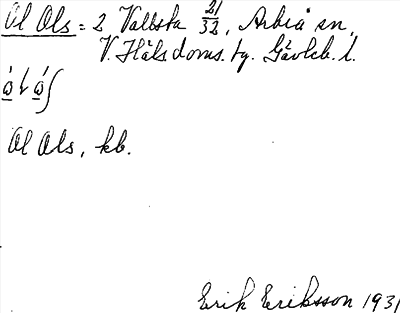 Ol Ols = 2 Vallsta 21/32, Arbrå sn,
V. Häls. doms. tg. Gävleb. l.
Ol Ols, kb.
Erik Eriksson 1931